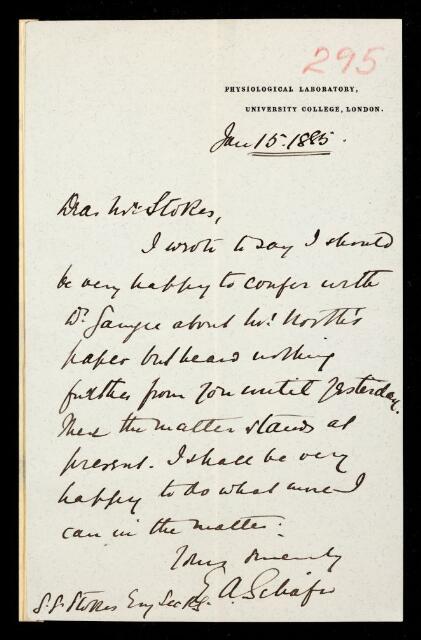 295
PHYSIOLOGICAL LABORATORY,
UNIVERSITY COLLEGE, LONDON.
Jan 15. 1885.
Dear Mr. Stokes,
I wrote to say I should
be very happy to confer with
Dr. about Mr. North's
paper but heard nothing
further from you until yesterday.
There the matter stands at
present. I shall be very
happy to do what more I
can in the matter.
Yours sincerely
E. A. Schäfer
G. G. Stokes Esq Sec. R.S.